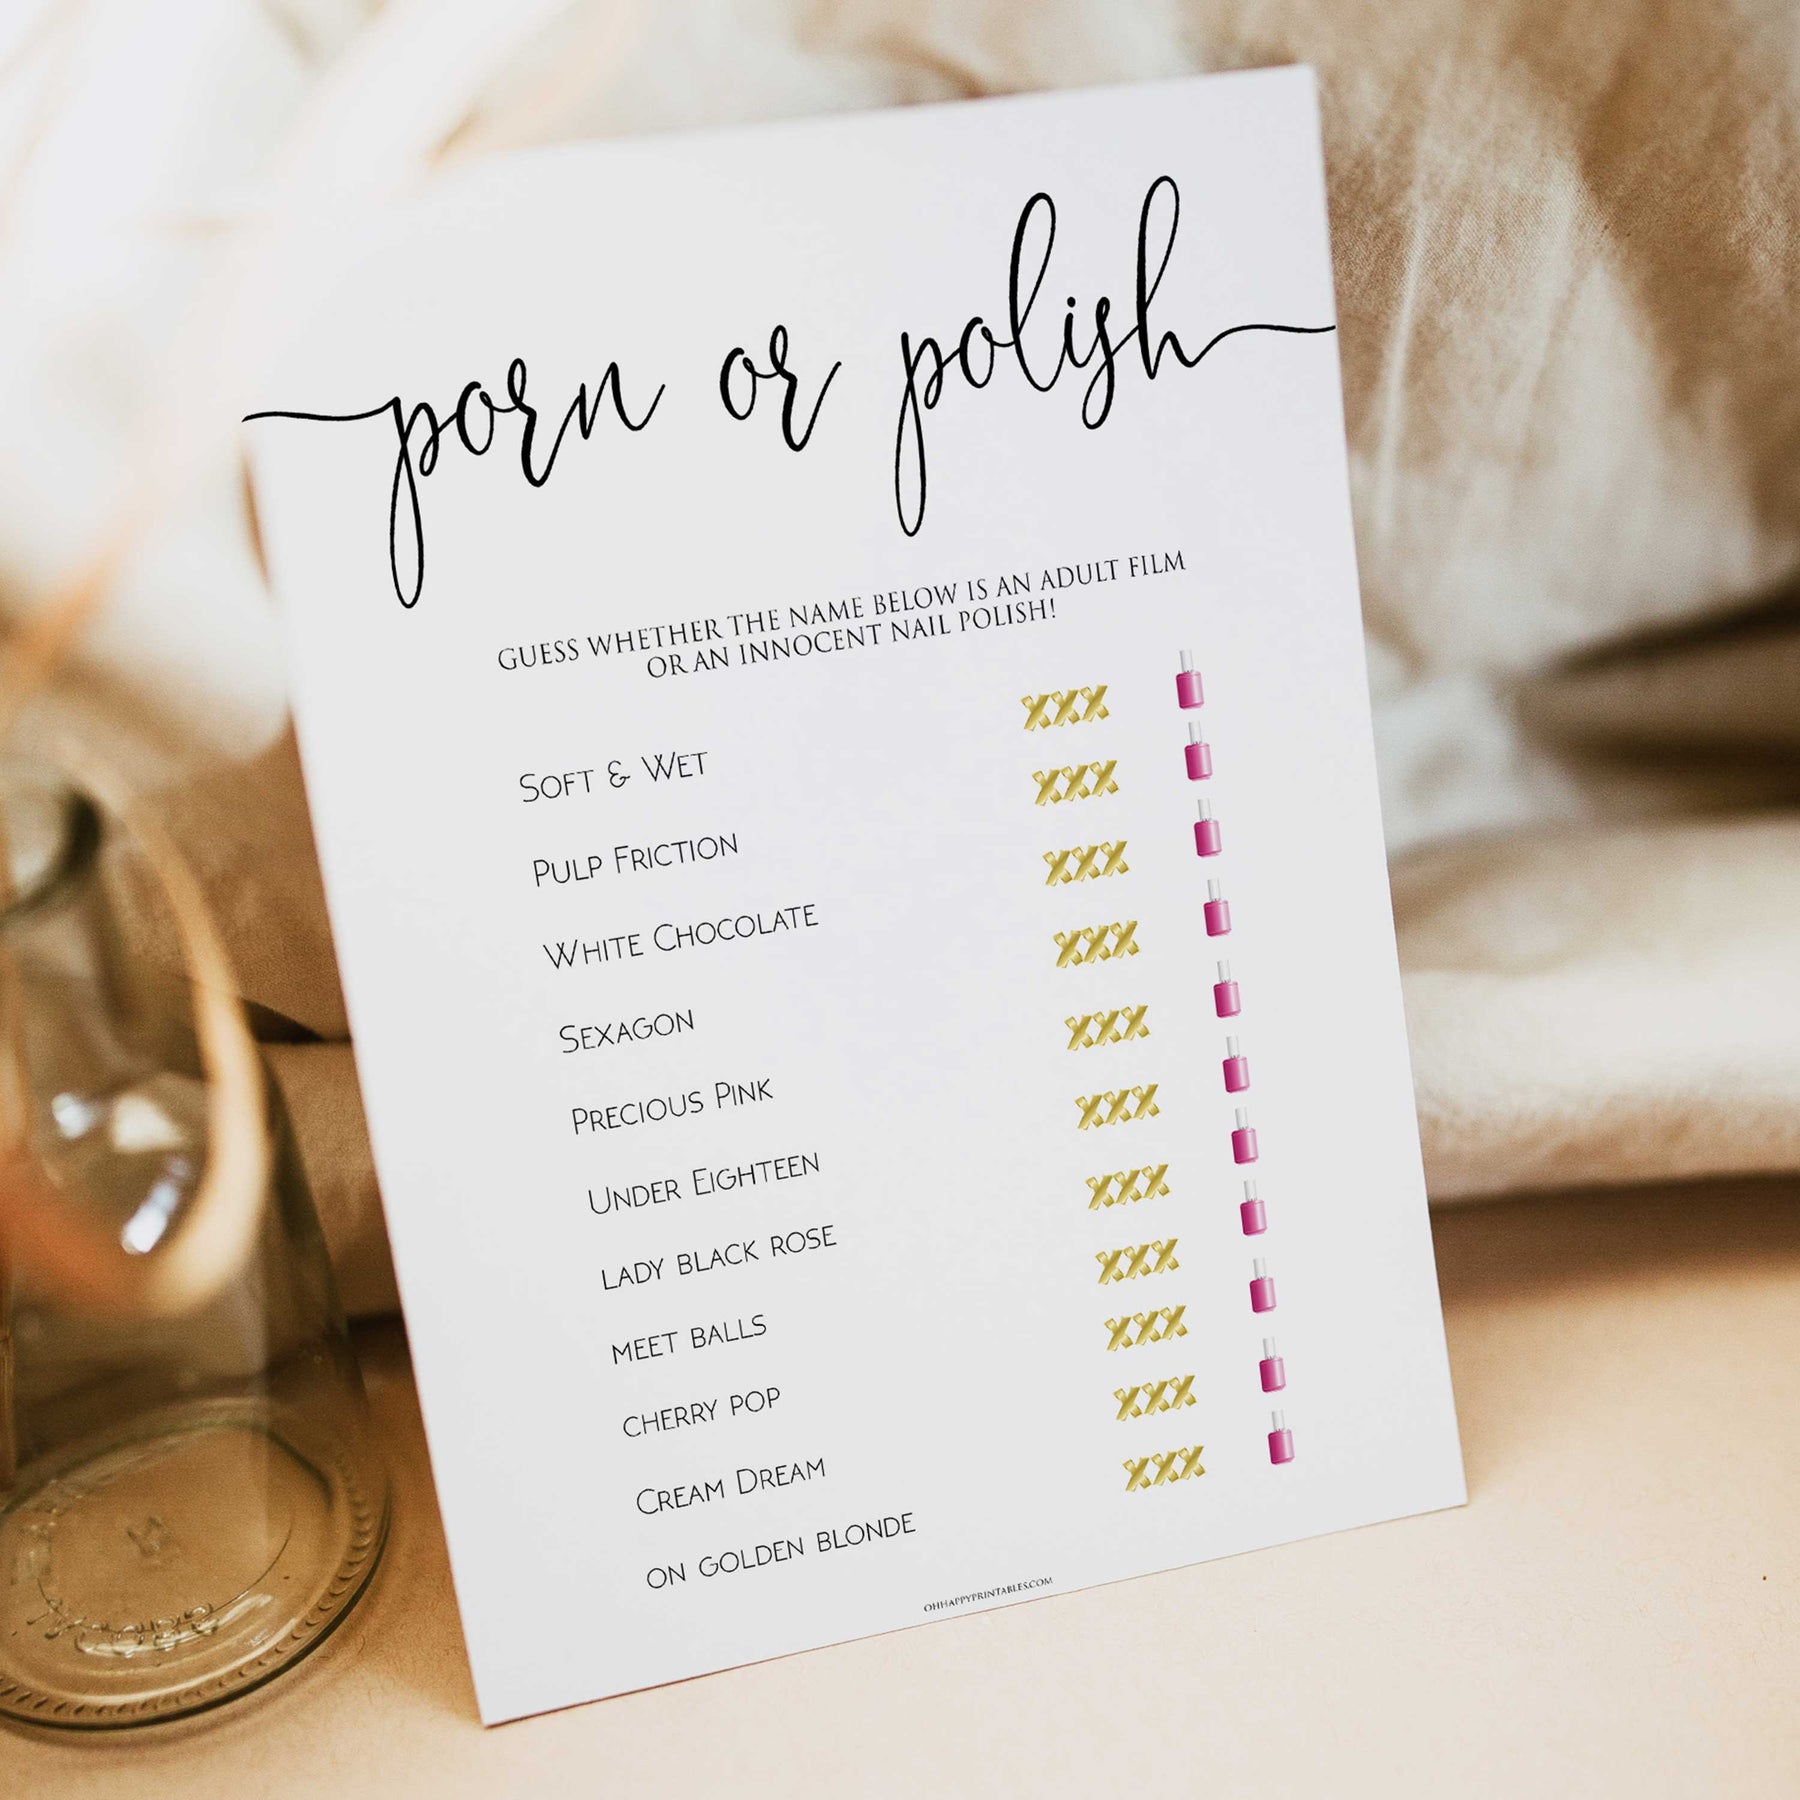 porn or polish
GUESS WHETHER THE NAME BELOW IS AN ADULT FILM
OR AN INNOCENT NAIL POLISH!
XXX
SOFT & WET
XXX
PULP FRICTION
XXX
WHITE CHOCOLATE
XXX
SEXAGON
XXX
PRECIOUS PINK
XXX
UNDER EIGHTEEN
XXX
LADY BLACK ROSE
XXX
MEET BALLS
XXX
CHERRY POP
XXX
CREAM DREAM
XXX
ON GOLDEN BLONDE
OHHAPPYPRINTABLES.COM